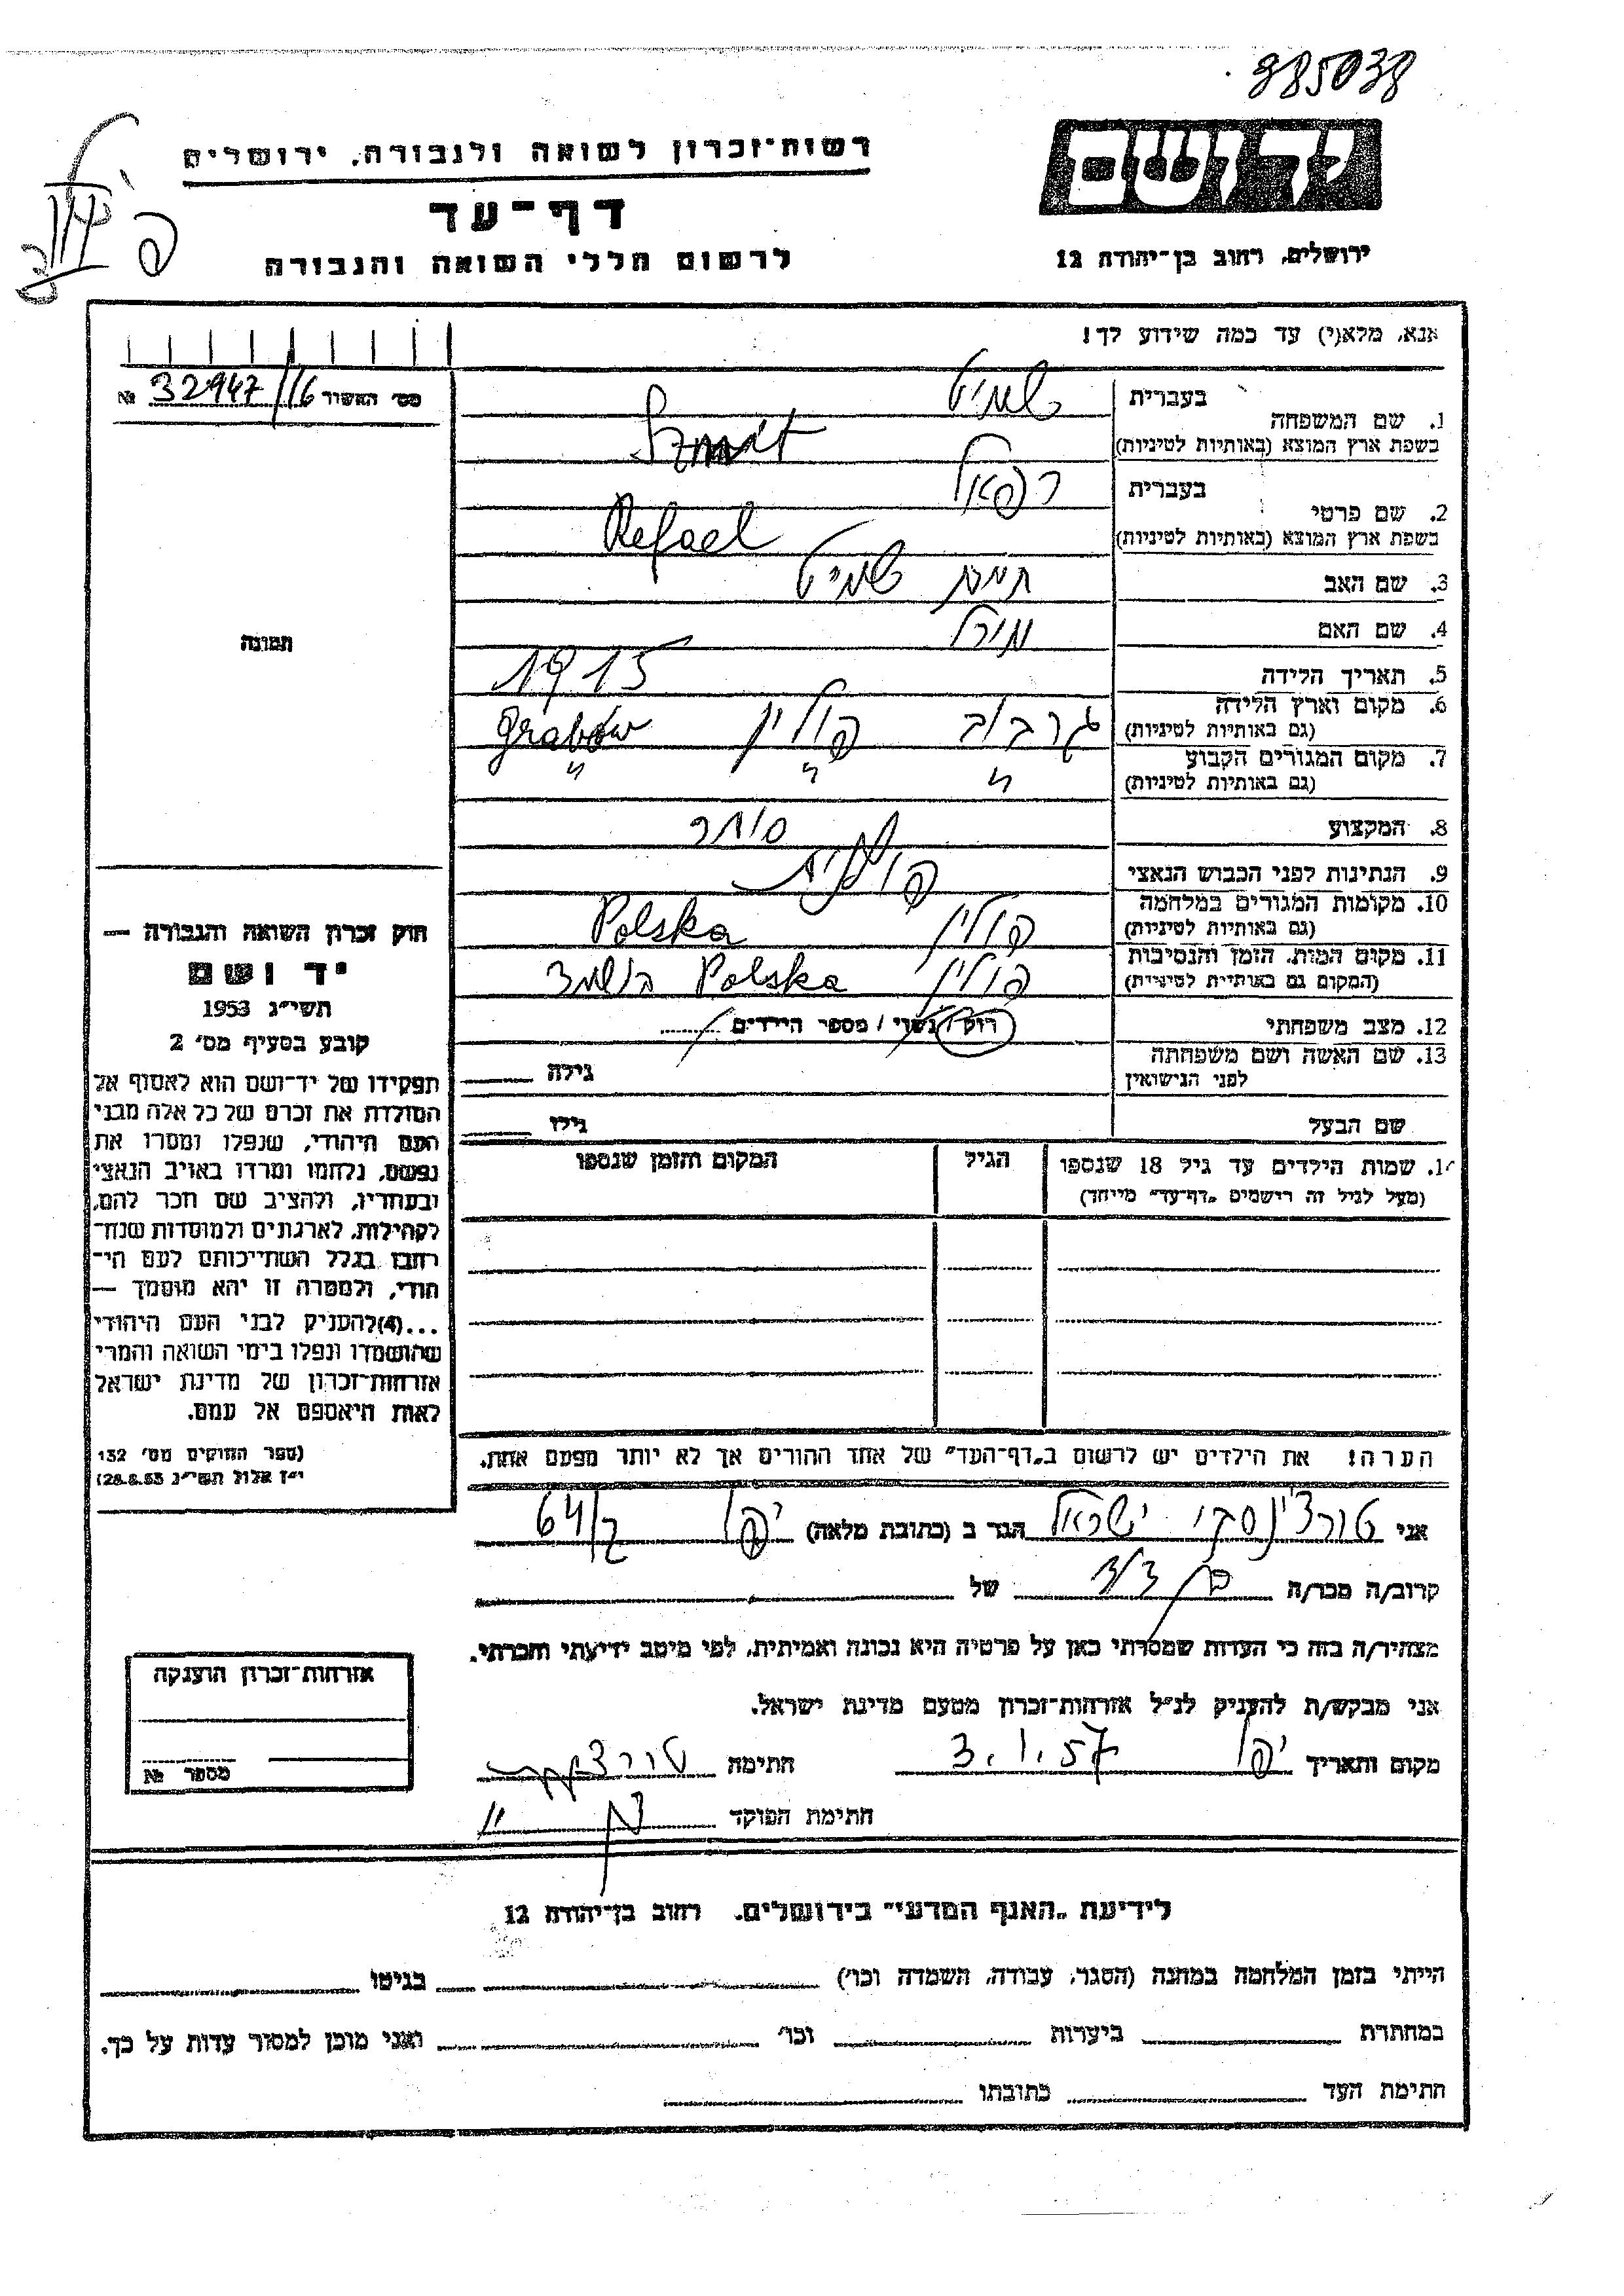 885038
יד ושם
רשות־זכרון לשואה ולגבורה, ירושלים
דף־עד
לרשום חללי השואה והגבורה
ירושלים, רחוב בן־יהודה 12
אנא, מלא(י) עד כמה שידוע לך!
מס׳ האשיר 32947/16 №
1. שם המשפחה בעברית שמיט
בשפת ארץ המוצא (באותיות לטיניות) Szmit
2. שם פרטי בעברית רפאל
בשפת ארץ המוצא (באותיות לטיניות) Refael
3. שם האב שמיט
4. שם האם
5. תאריך הלידה 1915
6. מקום וארץ הלידה גרבוב פולין Grabów
(גם באותיות לטיניות)
7. מקום המגורים הקבוע " " "
(גם באותיות לטיניות)
8. המקצוע סוחר
9. הנתינות לפני הכבוש הנאצי פולנית
10. מקומות המגורים במלחמה פולין Polska
(גם באותיות לטיניות)
11. מקום המות, הזמן והנסיבות פולין Polska הושמד
(המקום גם באותיות לטיניות)
12. מצב משפחתי רוק / נשוי / מספר הילדים
13. שם האשה ושם משפחתה גילה
לפני הנישואין
שם הבעל גילו
14. שמות הילדים עד גיל 18 שנספו הגיל המקום והזמן שנספו
(מעל לגיל זה רישמים "דף־עד" מייחד)
הערה! את הילדים יש לרשום ב"דף־העד" של אחד ההורים אך לא יותר מפעם אחת.
תמונה
חוק זכרון השואה והגבורה —
יד ושם
תשי״ג 1953
קובע בסעיף מס׳ 2
תפקידו של יד־ושם הוא לאסוף אל
המולדת את זכרם של כל אלה מבני
העם היהודי, שנפלו ומסרו את
נפשם, נלחמו ומרדו באויב הנאצי
ובעוזריו, ולהציב שם וזכר להם,
לקהילות, לארגונים ולמוסדות שנח־
רחבו בגלל השתייכותם לעם הי־
הודי, ולמטרה זו יהא מוסמך —
...(4)להעניק לבני העם היהודי
שהושמדו ונפלו בימי השואה והמרי
אזרחות־זכרון של מדינת ישראל
לאות היאספם אל עמם.
(ספר החוקים מס׳ 132
י״ז אלול תשי״ג 28.8.53)
אני טורצ'ינסקי ישראל הגר ב (כתובת מלאה) יפו 64
קרוב/ה מכר/ה בן דוד של
מצהיר/ה בזה כי העדות שמסרתי כאן על פרטיה היא נכונה ואמיתית, לפי מיטב ידיעתי והכרתי.
אני מבקש/ת להעניק לנ״ל אזרחות־זכרון מטעם מדינת ישראל.
מקום ותאריך יפו 3.1.57 חתימה
חתימת הפוקד
אזרחות־זכרון הוענקה
מספר №
לידיעת "האגף המדעי" בירושלים, רחוב בן־יהודה 12
הייתי בזמן המלחמה במחנה (הסגר, עבודה, השמדה וכו׳) בגיטו
במחתרת ביערות וכו׳ ואני מוכן למסור עדות על כך.
חתימת העד כתובתו